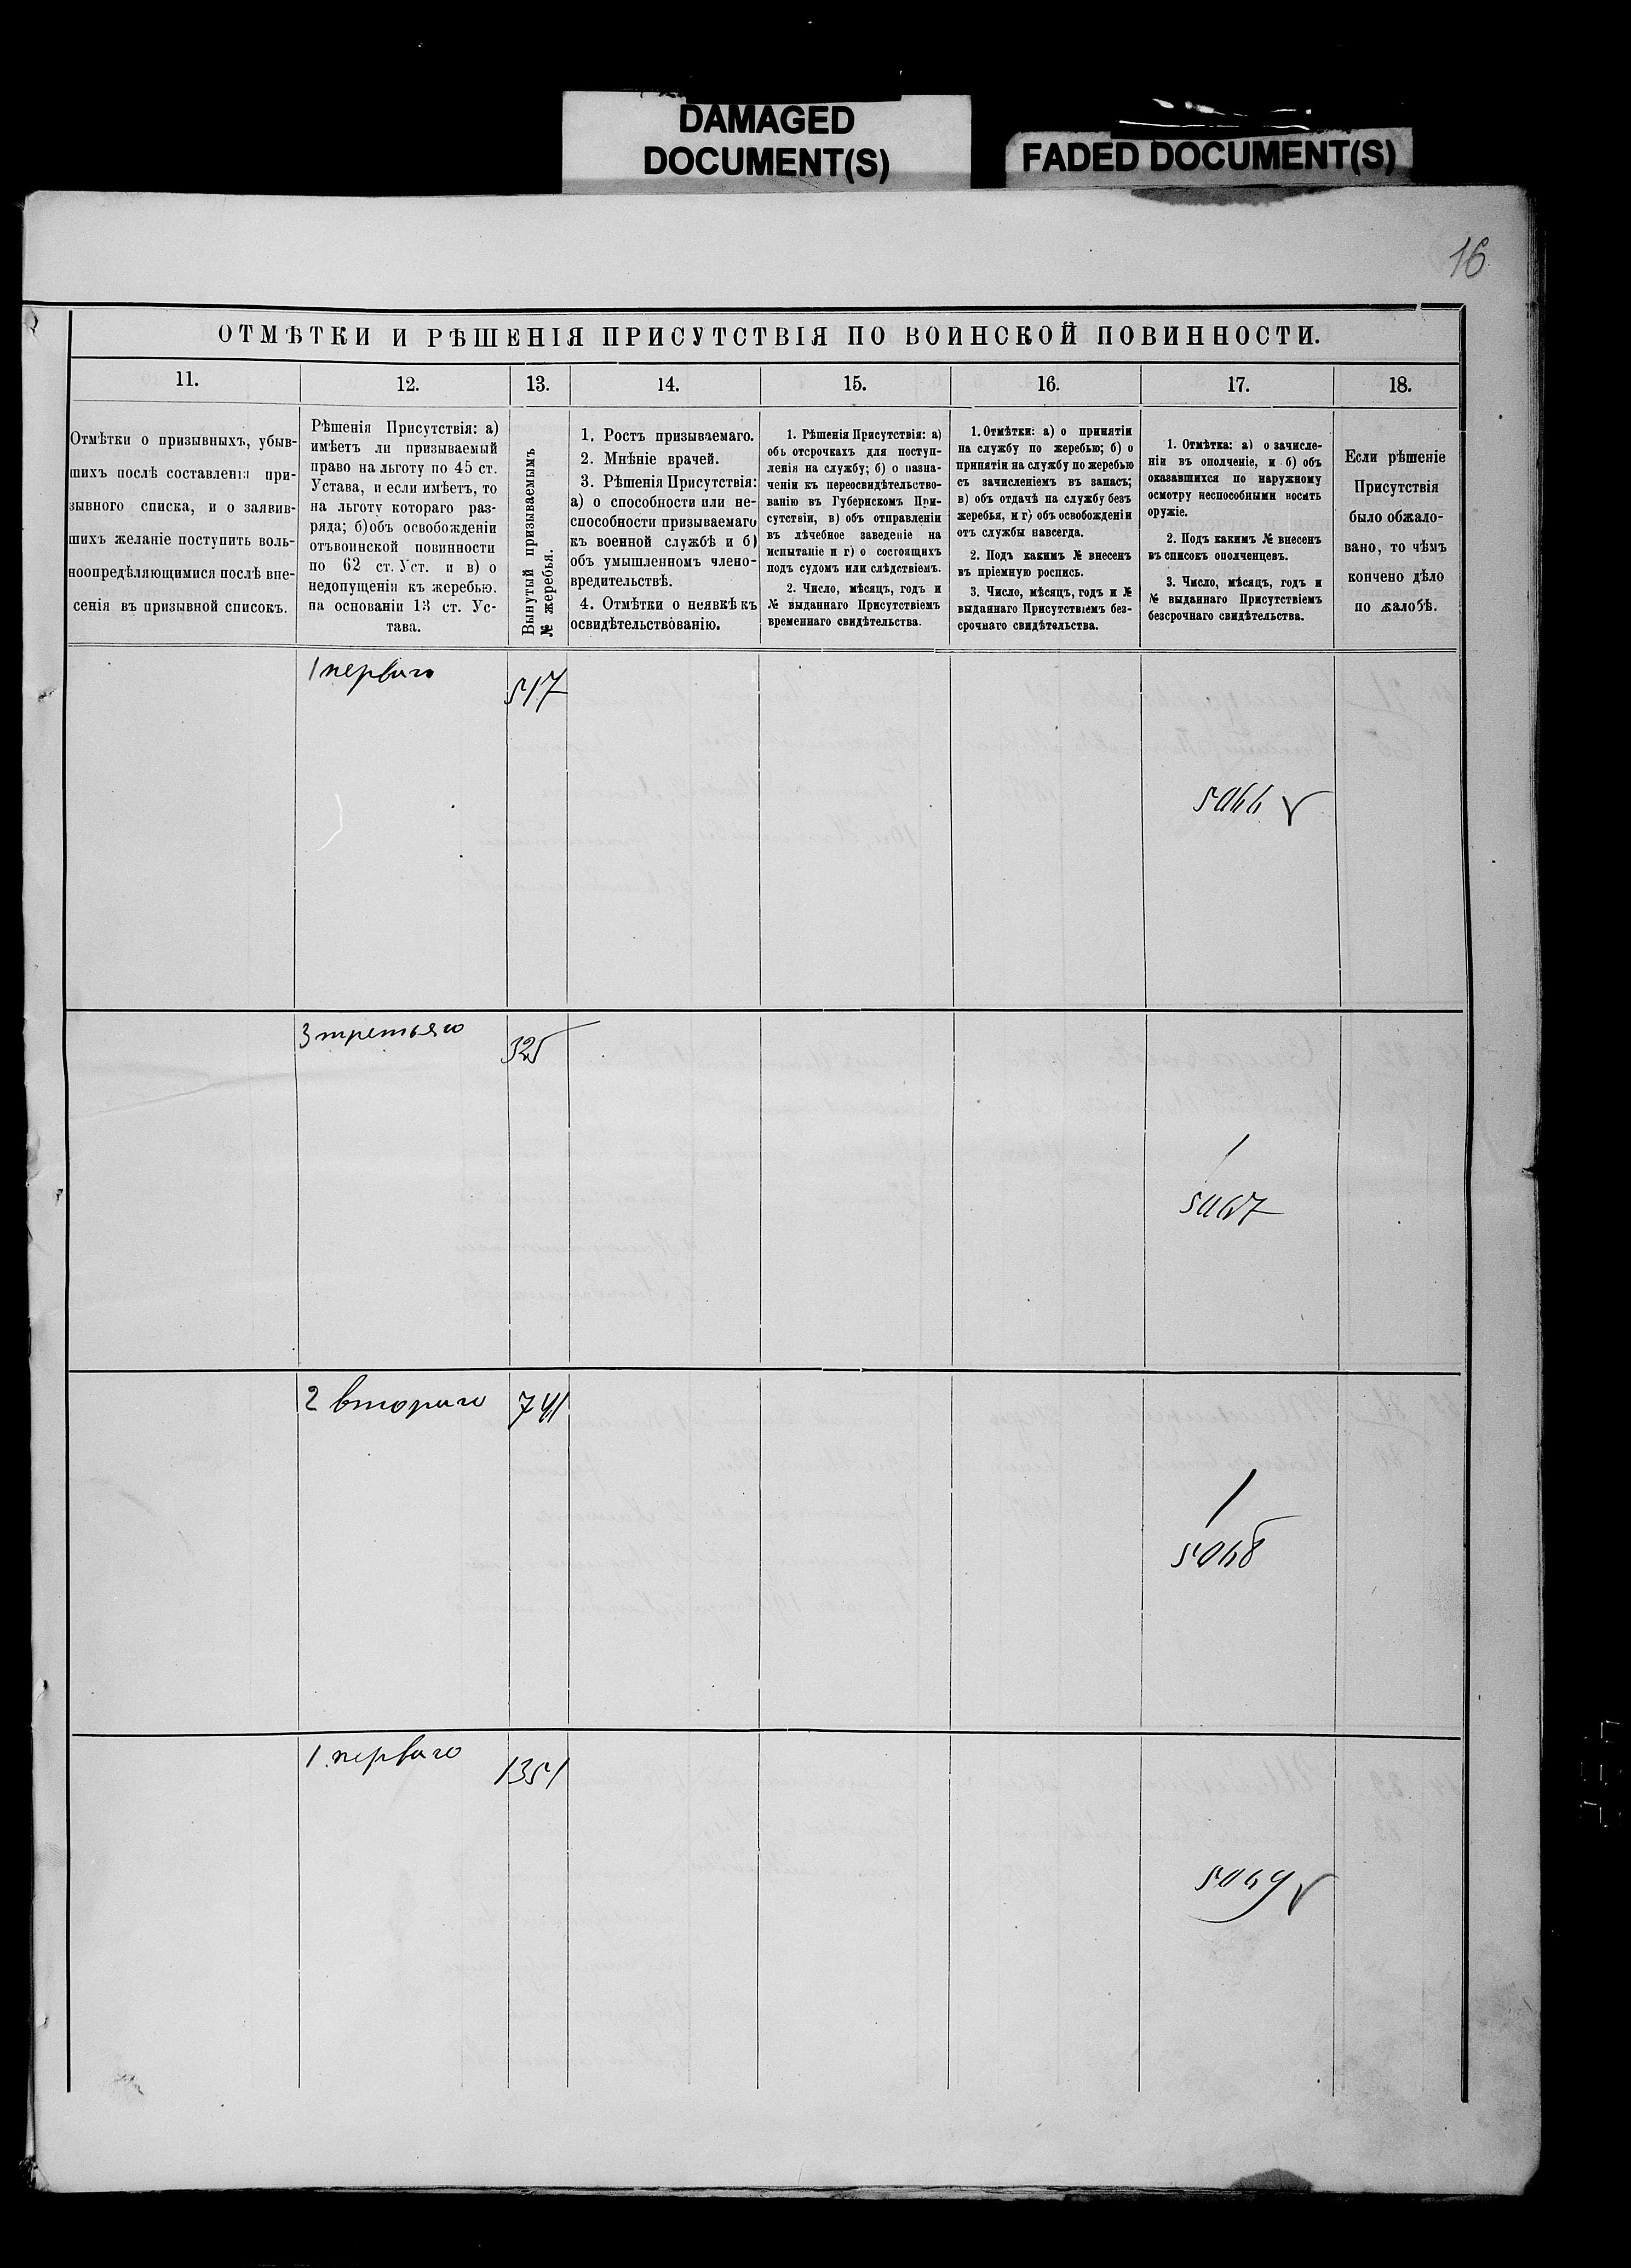 DAMAGED
DOCUMENT(S)
FADED DOCUMENT(S)
16
ОТМѢТКИ И РѢШЕНІЯ ПРИСУТСТВІЯ ПО ВОИНСКОЙ ПОВИННОСТИ.
11.
12.
13.
14.
15.
16.
17.
18.
Отмѣтки о призывныхъ, убыв-
шихъ послѣ составленія при-
зывного списка, и о заявив-
шихъ желаніе поступить воль-
ноопредѣляющимися послѣ вне-
сенія въ призывной списокъ.
Рѣшенія Присутствія: а)
имѣетъ ли призываемый
право на льготу по 45 ст.
Устава, и если имѣетъ, то
на льготу котораго раз-
ряда; б) объ освобожденіи
отъ воинской повинности
по 62 ст. Уст. и в) о
недопущеніи къ жеребью.
на основаніи 13 ст. Ус-
тава.
Вынутый призываемымъ
№ жеребья.
1. Ростъ призываемаго.
2. Мнѣніе врачей.
3. Рѣшенія Присутствія:
а) о способности или не-
способности призываемаго
къ военной службѣ и б)
объ умышленномъ члено-
вредительствѣ.
4. Отмѣтки о неявкѣ къ
освидѣтельствованію.
1. Рѣшенія Присутствія: а)
объ отсрочкахъ для поступ-
ленія на службу; б) о назна-
ченіи къ переосвидѣтельство-
ванію въ Губернскомъ При-
сутствіи, в) объ отправленіи
въ лѣчебное заведеніе на
испытаніе и г) о состоящихъ
подъ судомъ или слѣдствіемъ.
2. Число, мѣсяцъ, годъ и
№ выданнаго Присутствіемъ
временнаго свидѣтельства.
1. Отмѣтки: а) о принятіи
на службу по жеребью; б) о
принятіи на службу по жеребью
съ зачисленіемъ въ запасъ;
в) объ отдачѣ на службу безъ
жеребья, и г) объ освобожденіи
отъ службы навсегда.
2. Подъ какимъ № внесенъ
въ пріемную роспись.
3. Число, мѣсяцъ, годъ и №
выданнаго Присутствіемъ без-
срочнаго свидѣтельства.
1. Отмѣтка: а) о зачисле-
ніи въ ополченіе, и б) объ
оказавшихся по наружному
осмотру неспособными носить
оружіе.
2. Подъ какимъ № внесенъ
въ списокъ ополченцевъ.
3. Число, мѣсяцъ, годъ и
№ выданнаго Присутствіемъ
безсрочнаго свидѣтельства.
Если рѣшеніе
Присутствія
было обжало-
вано, то чѣмъ
кончено дѣло
по жалобѣ.
1 перваго
517
5066
3 третьяго
325
5067
2 второго
741
5068
1 перваго
1351
5069